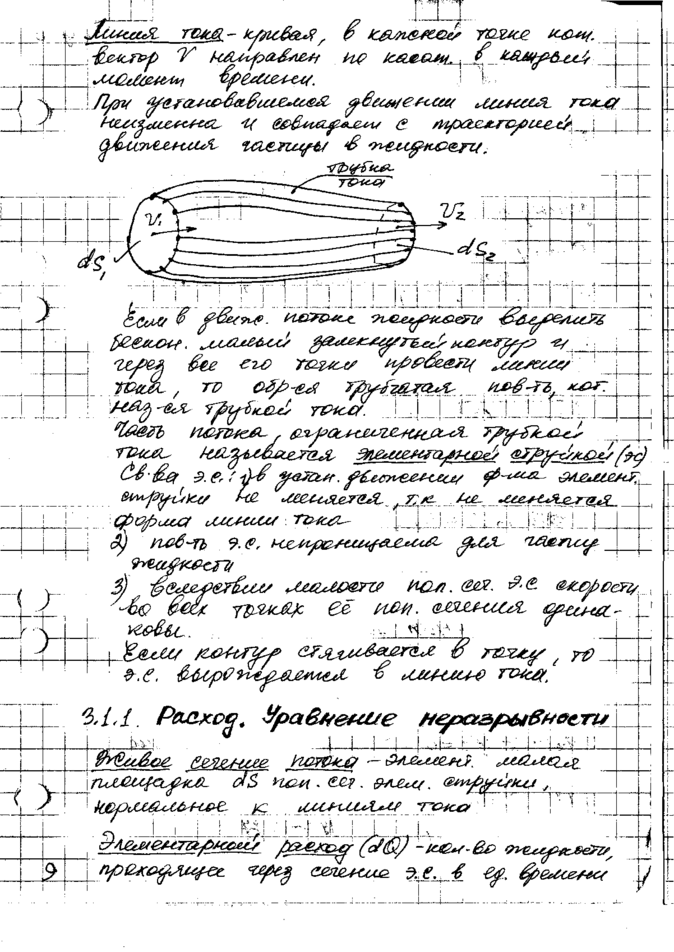 Линия тока - кривая, в каждой точке кот.
вектор V направлен по касат. в каждый
момент времени.
При установавшемся движении линия тока
неизменна и совпадает с траекторией
движения частицы в жидкости.
трубка
тока
V₁
V₂
dS₁
dS₂
Если в движ. потоке жидкости выделить
бескон. малый замкнутый контур и
через все его точки провести линии
тока, то обр-ся трубчатая пов-ть, кот.
наз-ся трубкой тока.
Часть потока, ограниченная трубкой
тока называется элементарной струйкой (эс)
Св-ва э.с.: 1) в устан. движении ф-ма элемент.
струйки не меняется, т.к не меняется
форма линии тока
2) пов-ть э.с. непроницаема для частиц
жидкости
3) вследствии малости поп. сеч. э.с. скорости
во всех точках её поп. сечения одина-
ковы.
Если контур стягивается в точку, то
э.с. вырождается в линию тока.
3.1.1. Расход. Уравнение неразрывности
Живое сечение потока - элемент. малая
площадка dS поп. сеч. элем. струйки,
нормальное к линиям тока
Элементарный расход (dQ) - кол-во жидкости,
проходящее через сечение э.с. в ед. времени
9